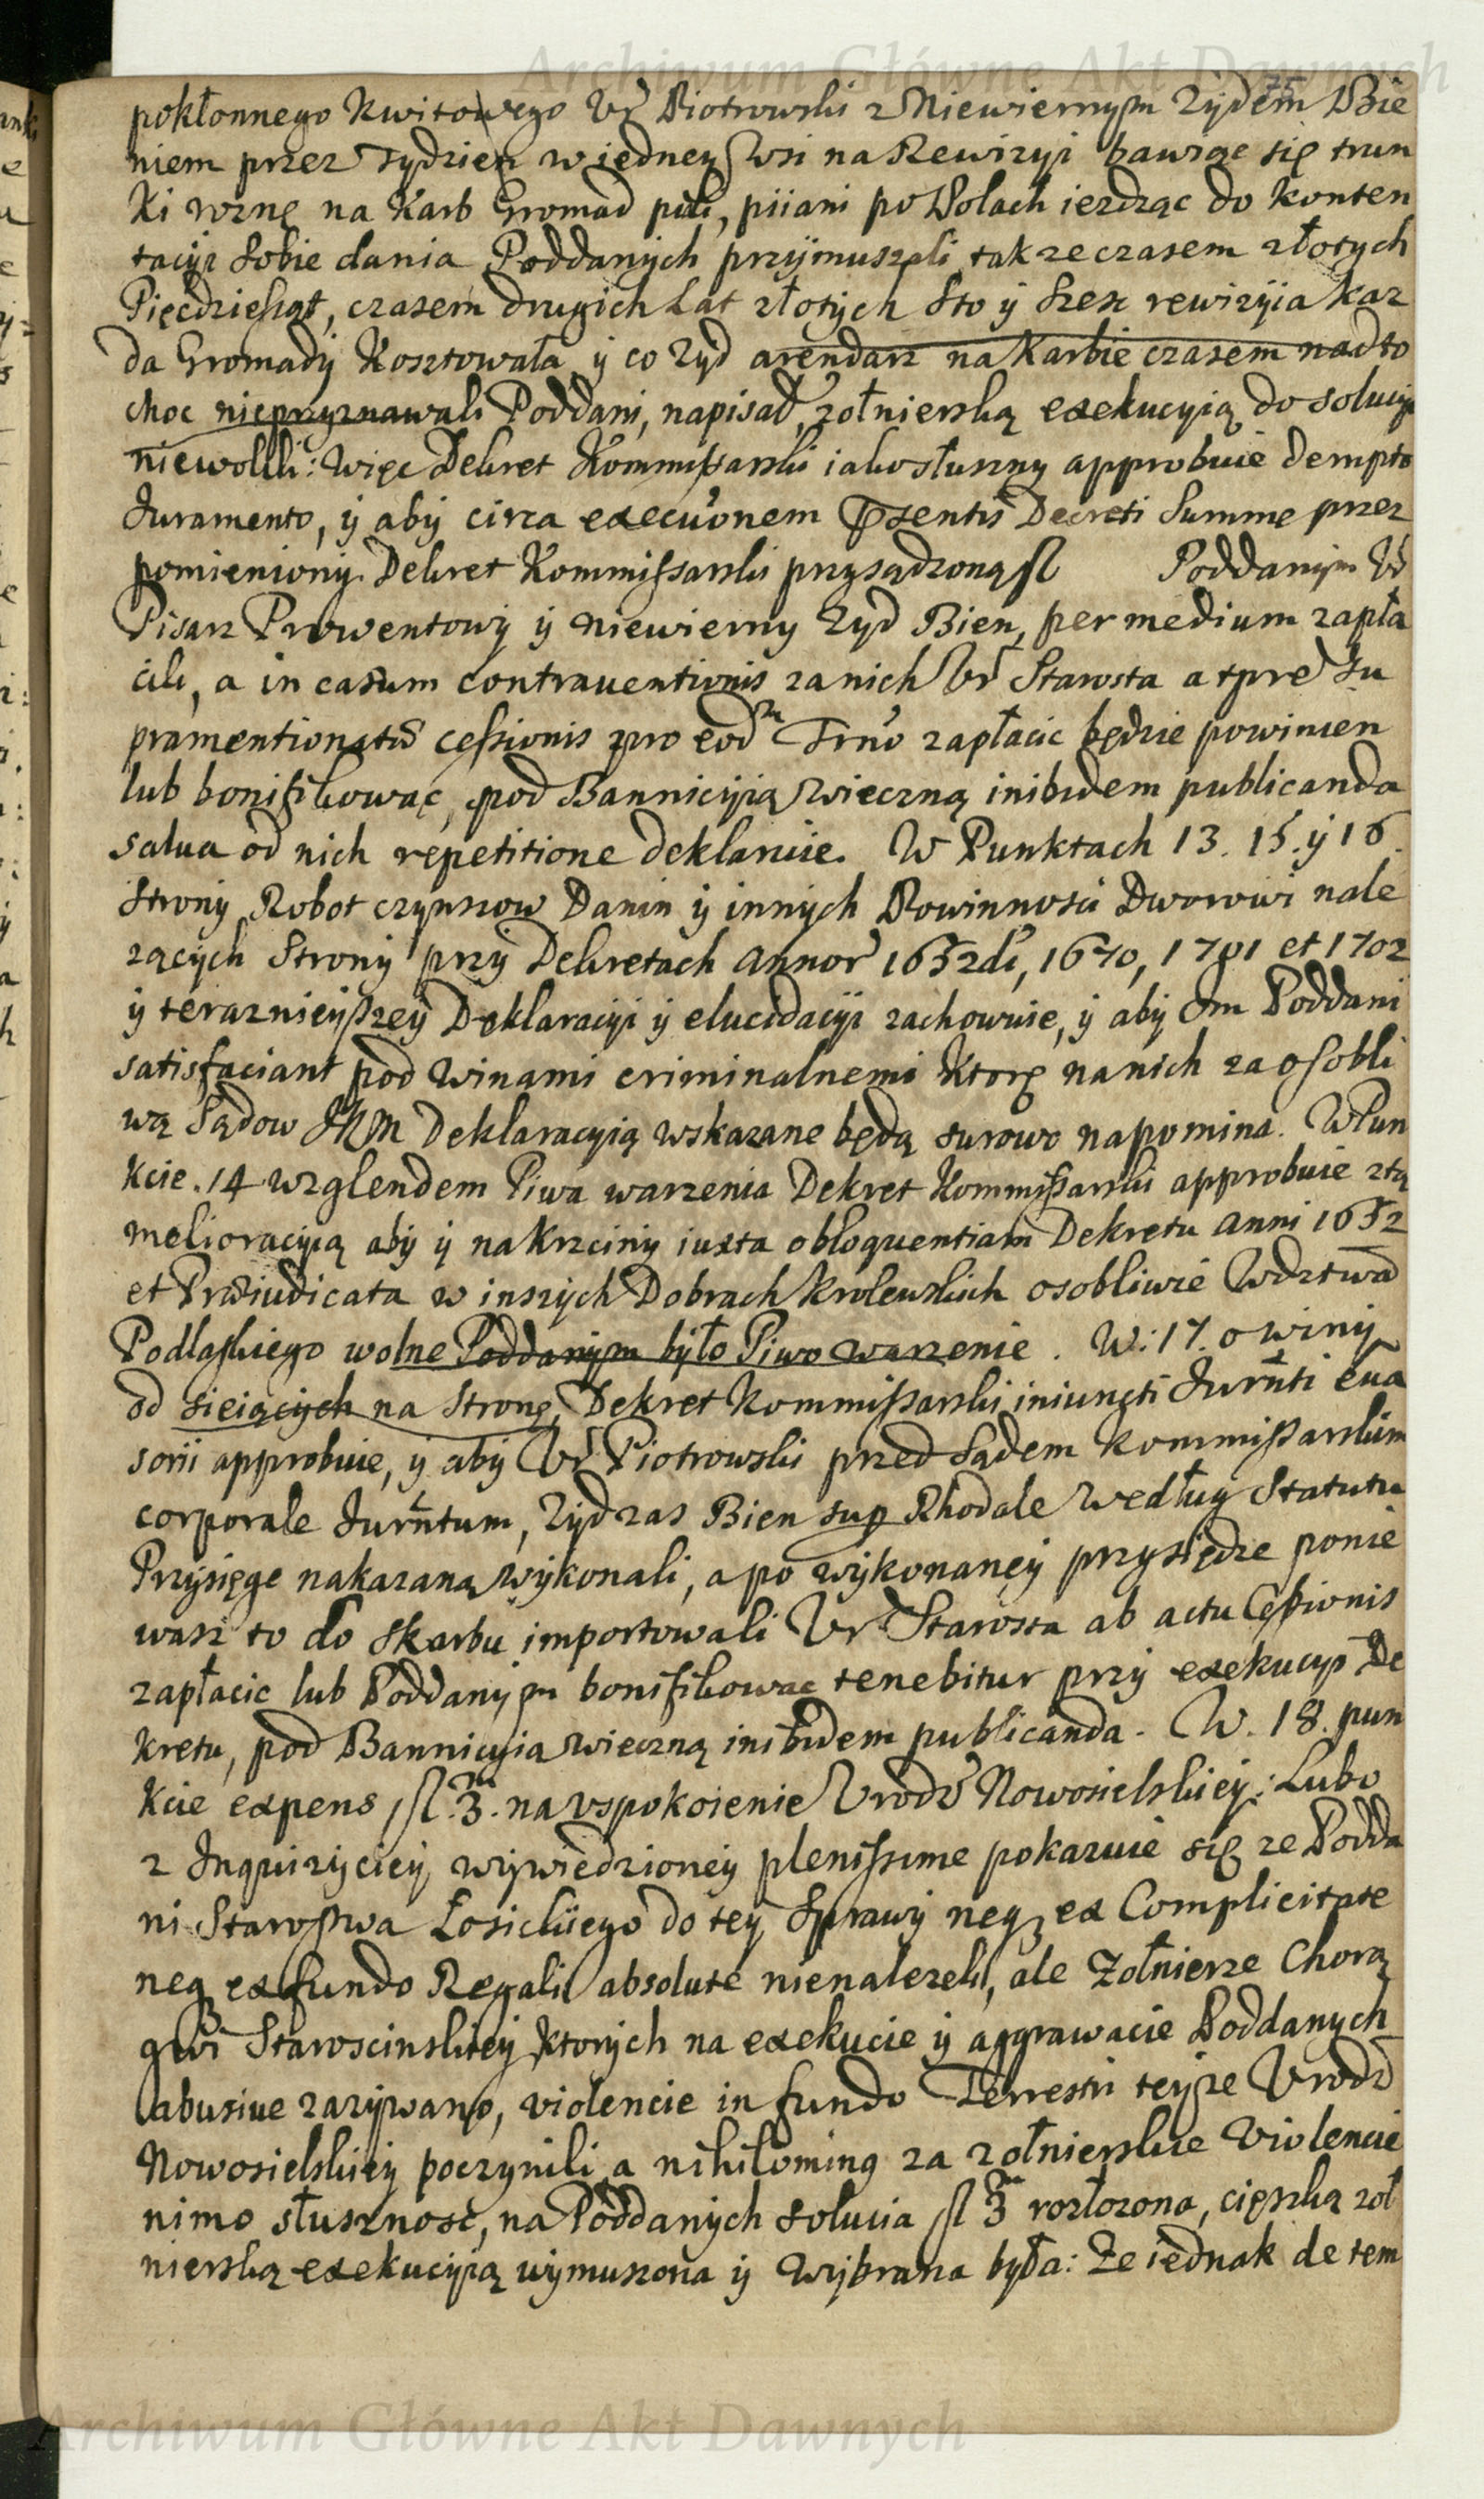 Archiwum Główne Akt Dawnych
75
pokłonnego Kwitowego Ur Piotrowski z Niewiernym Zydem Bie
niem przez Tydzien w iedney Wsi na Rewizyi bawiąc się trun
ki rożne na Karb Gromad pili, piiani po Polach iezdząc do konten
tacyi sobie dania Poddanych przymuszali, tak ze czasem złotych
Pięcdziesiąt, czasem drugich Lat złotych Sto y szesc rewizyia kaz
da Gromady Kosztowała y co Zyd arendarz na Karbie czasem nadto
choc nieprzyznawali Poddani, napisał, zołnierską exekucyią do solucyi
niewolili: Więc Dekret Kommissarski iako słuszny approbuie dempto
Juramento, y aby circa execuonem Psentis Decreti Summe przez
pomieniony Dekret Kommissarski przysądzoną fl Poddanym Ur
Pisarz Prowentowy y niewierny Zyd Bien, per medium zapła
cili, a in casum contrauentionis za nich Ur Starosta a tpre su
pramentionatae cessionis pro eodm Trno zapłacic będzie powinien
lub bonifikowac, pod Bannicyią Wieczną inibidem publicanda
salua od nich repetitione deklaruie. W Punktach 13. 15. y 16.
Strony Robot czynszow Danin y innych Powinnosci Dworowi nale
zących Strony przy Dekretach Annor 1652di, 1670, 1701 et 1702
y teraznieyszey Deklaracyi y elucidacyi zachowuie, y aby Om Poddani
satisfaciant pod winami criminalnemi Ktore na nich za osobli
wą Sądow JKM Deklaracyią wskazane będą surowo napomina. W Pun
kcie. 14 wzglendem Piwa warzenia Dekret Kommissarski approbuie z tą
melioracyią aby y na Krzciny iuxta obloquentiam Dekretu Anni 1652
et Praeiudicata w inszych Dobrach Krolewskich osobliwie Wdztwa
Podlaskiego wolne Poddanym było Piwo warzenie. W: 17. o winy
od sieiących na Stronę, Dekret Kommissarski iniuncti Jurnti eua
sorii approbuie, y aby Ur Piotrowski przed Sądem Kommissarskim
corporale Jurntum, Zyd zas Bien sup Rhodale Według Statutu
Przysięge nakazaną Wykonali, a po wykonaney przysiędze ponie
wasz to do Skarbu importowali Ur Starosta ab actu Cessionis
zapłacic lub Poddanym bonifikowac tenebitur przy exekucyi De
kretu, pod Bannicyia Wieczną inibidem publicanda. W. 18. pun
kcie expens fl. 3m. na vspokoienie Vrodz Nowosielskiey: Lubo
z Inquizyciey wywiedzioney plenissime pokazuie się ze Podda
ni Starostwa Łosickiego do tey Sprawy neq ex Complicitate
neq ex fundo Regali absolute nienalezeli, ale Zołnierze Chorą
gwi Staroscinskiey Ktorych na exekucie y aggrawacie Poddanych
abusiue zazywano, violencie in fundo Terrestri teyze Vrodz
Nowosielskiey poczynili, a nihilominq za zołnierskie Violencie
nimo słusznosc, na Poddanych solucia fl 3m rozłozona, cięszką zoł
nierską exekucyią wymuszona y wybrana była: Ze iednak de tem
Archiwum Główne Akt Dawnych